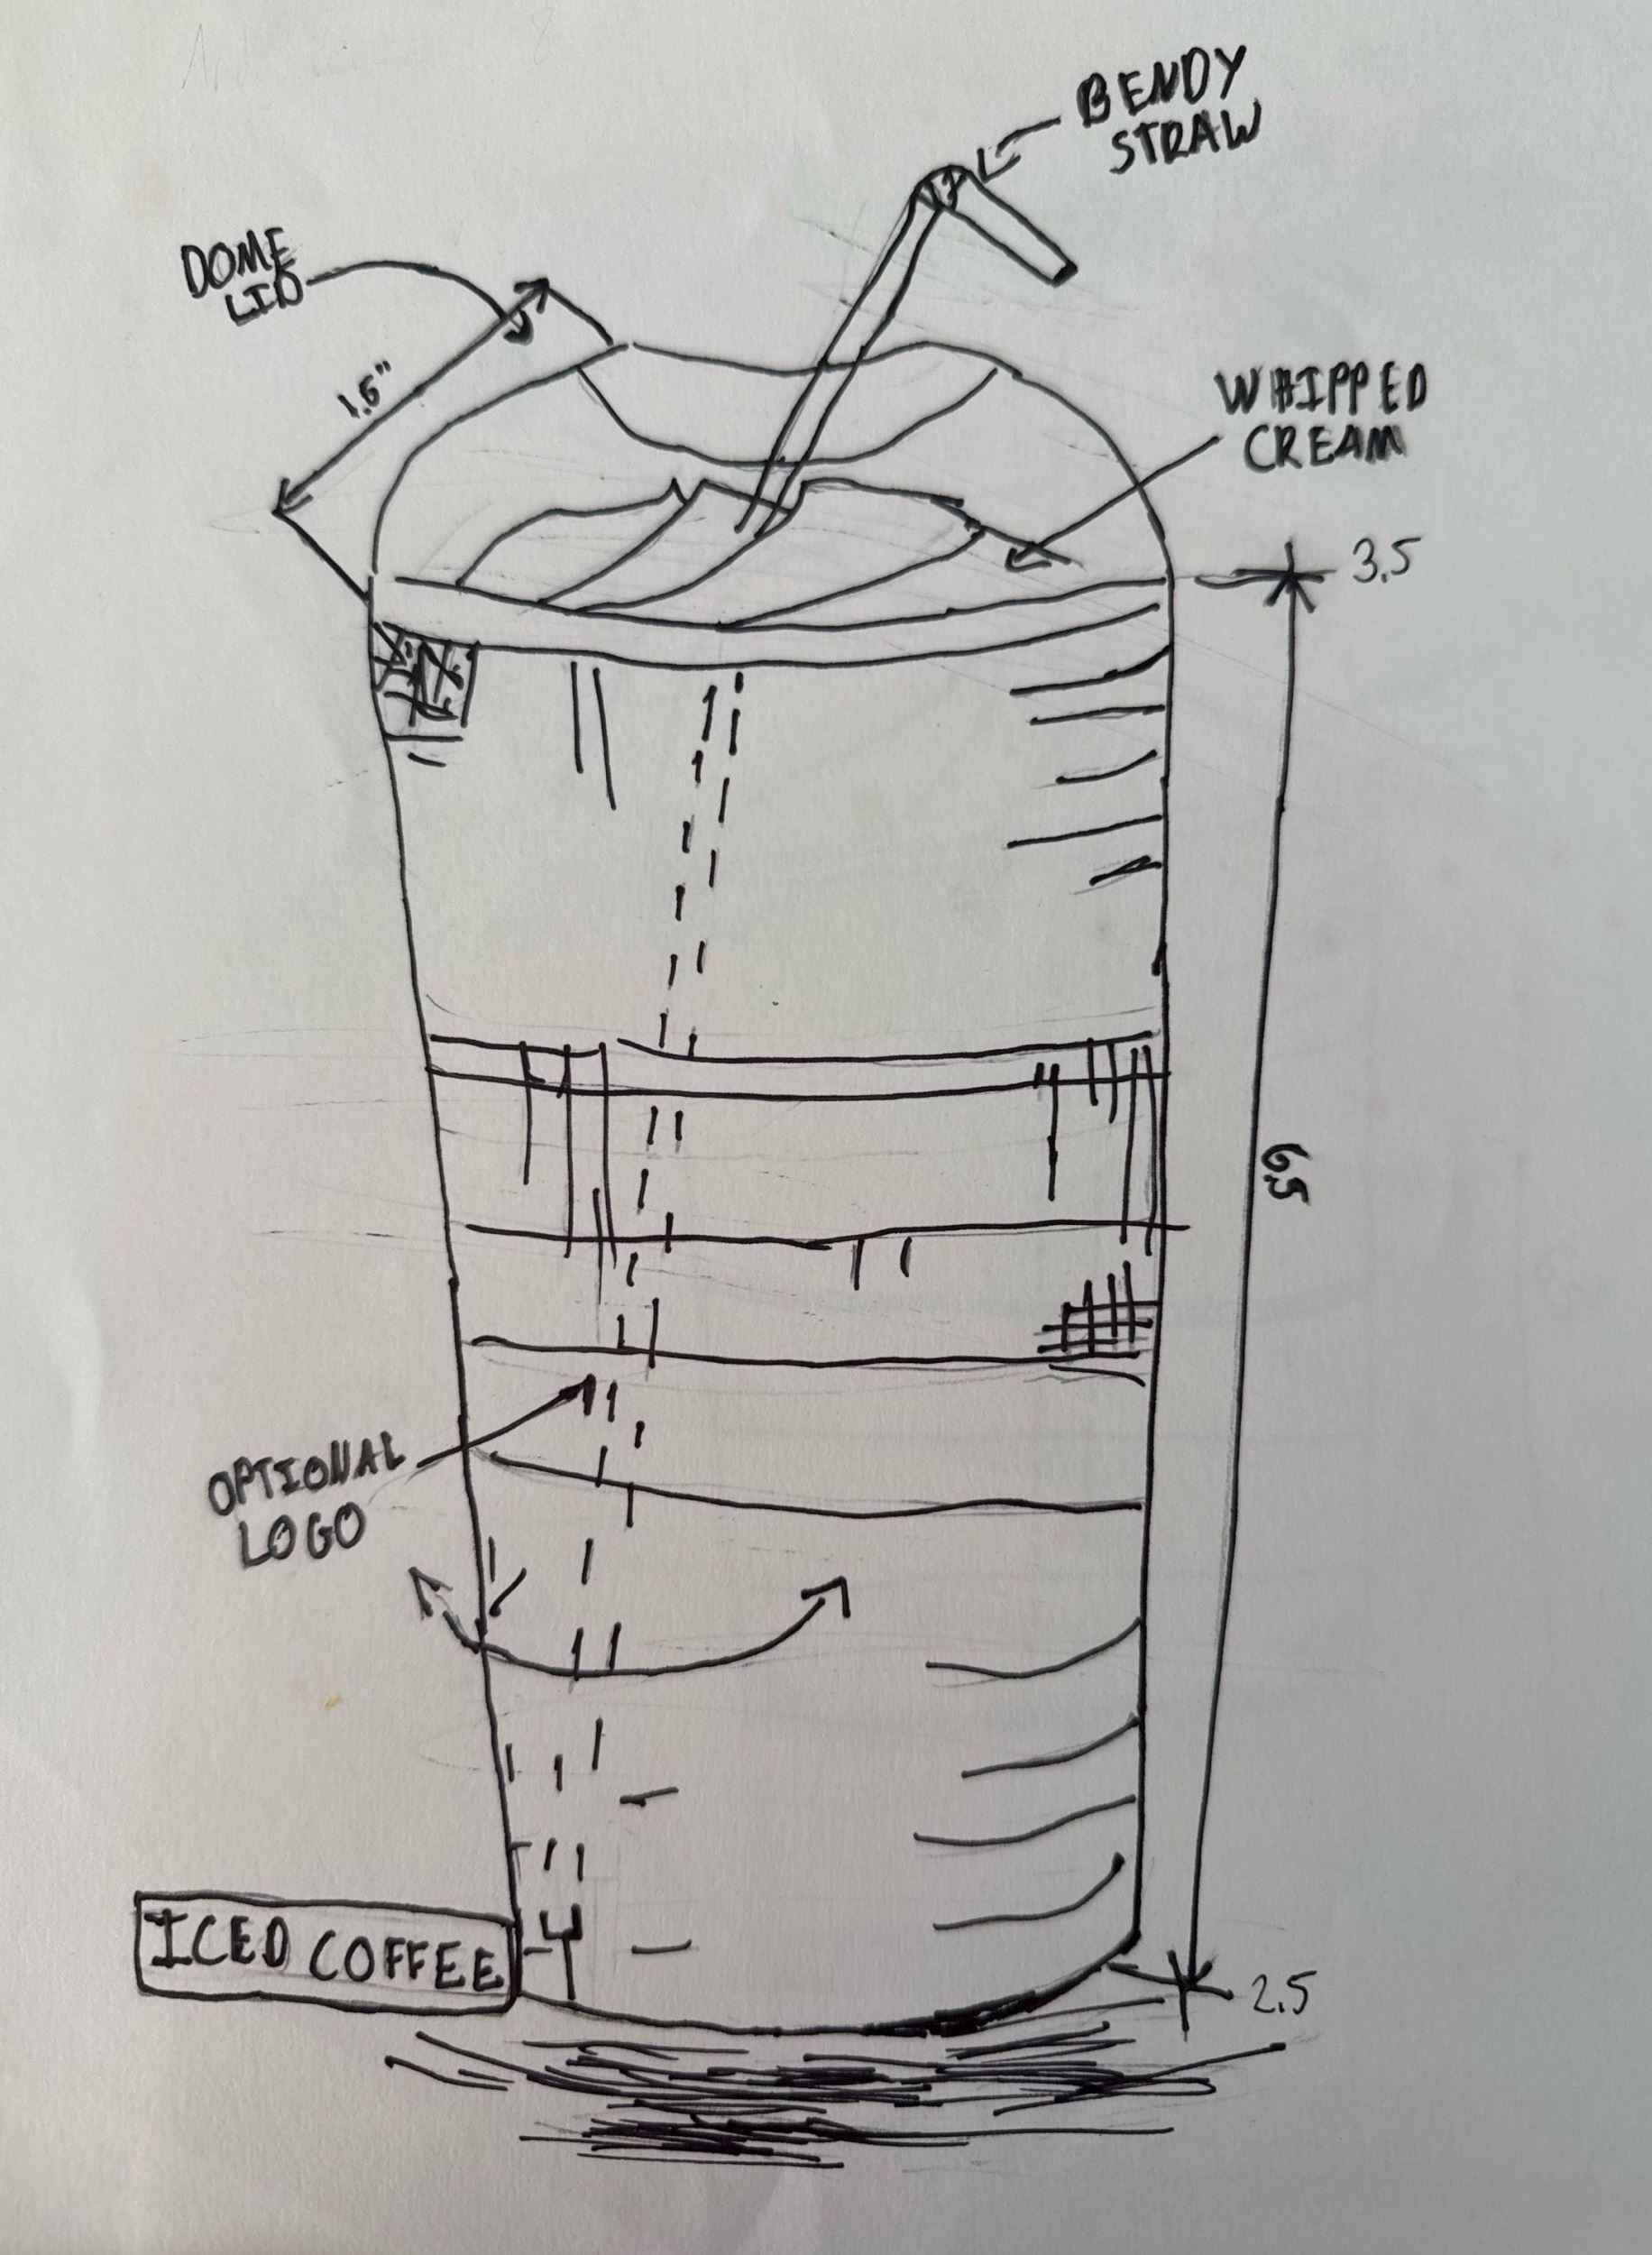 BENDY
STRAW
DOME
LID
1.5"
WHIPPED
CREAM
3.5
6.5
OPTIONAL
LOGO
ICED COFFEE
2.5